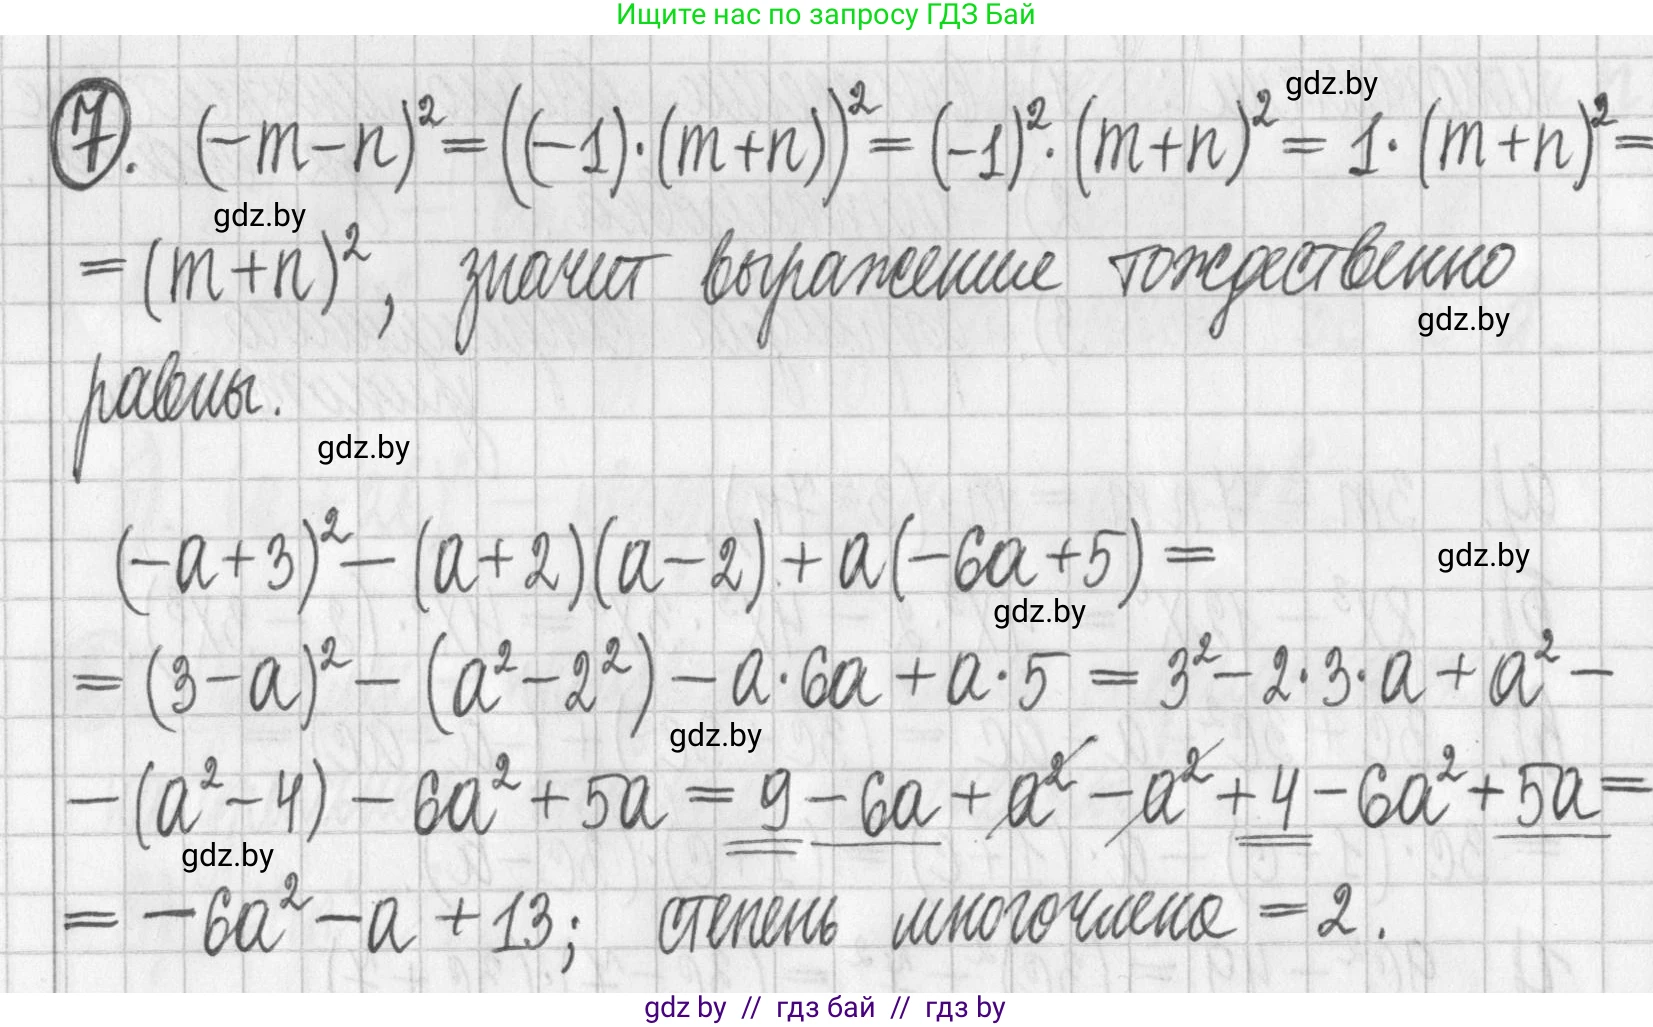 Ищите нас по запросу ГДЗ Бай
gdz.by
7. (-m-n)² = ((-1)·(m+n))² = (-1)²·(m+n)² = 1·(m+n)² =
gdz.by
= (m+n)², значит выражение тождественно
gdz.by
равны.
gdz.by
(-a+3)² - (a+2)(a-2) + a(-6a+5) =
gdz.by
gdz.by
= (3-a)² - (a²-2²) - a·6a + a·5 = 3² - 2·3·a + a² -
gdz.by
- (a²-4) - 6a² + 5a = 9 - 6a + a² - a² + 4 - 6a² + 5a =
gdz.by
= -6a² - a + 13; степень многочлена = 2.
gdz by // гдз бай // гдз by